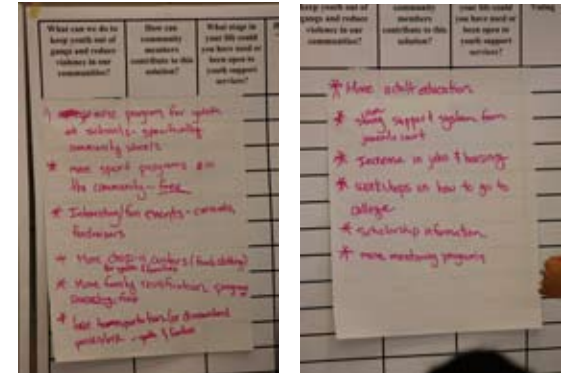 What can we do to
keep youth out of
gangs and reduce
violence in our
communities?
How can
community
members
contribute to this
solution?
What stage in
your life could
you have used or
been open to
youth support
services?
program for youth
at schools - specifically
community schools
* more sport programs in
the community - free
* Interesting/fun events - concerts,
fundraisers
* More drop-in centers (food, clothing)
for youth & families
* More family reunification program
* transportation
youth & families
keep youth out of
gangs and reduce
violence in our
communities?
community
members
contribute to this
solution?
your life could
you have used or
been open to
youth support
services?
Voting
* More adult education
* strong support system from
juvenile court
* Increase in jobs & housing
* workshops on how to go to
college
* scholarship information
* more mentoring programs